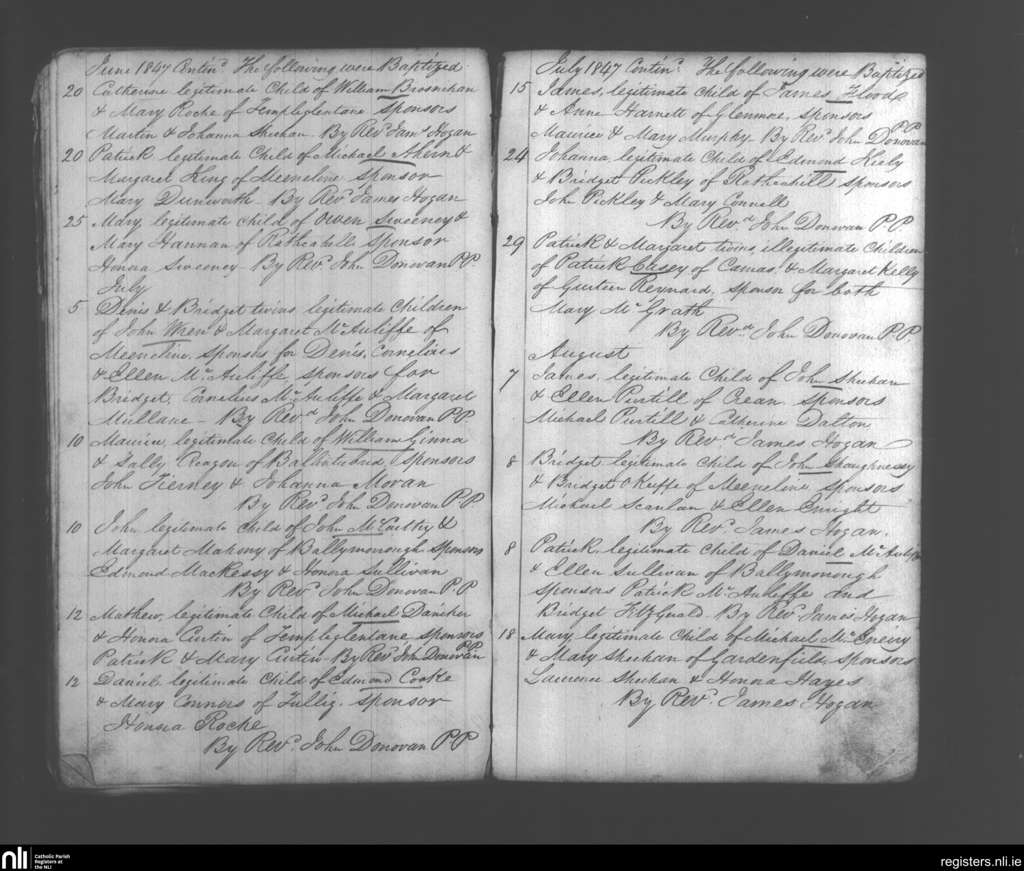 June 1847 Contind. The following were Baptized
20 Catherine legitimate Child of William Brosnihan
& Mary Roche of Templeglentane Sponsors
Martin & Johanna Sheehan By Revd Jams Hogan
20 Patrick legitimate Child of Michael Ahern &
Margaret King of Meeneline, Sponsor
Mary Dunworth - By Revd James Hogan
25 Mary, legitimate Child of Owen Sweeney &
Mary Hannan of Rathcahill Sponsor
Honora Sweeney - By Revd John Donovan P.P.
July
5 Denis & Bridget twins, legitimate Children
of John Wren & Margaret McAuliffe of
Meeneline, Sponsors for Denis, Cornelius
& Ellen McAuliffe, sponsors for
Bridget, Cornelius McAuliffe & Margaret
Mullane - By Revd John Donovan P.P.
10 Maurice, legitimate Child of William Ginna
& Sally Reagan of sponsors
John Tierney & Johanna Moran
By Revd John Donovan P.P.
10 John legitimate Child of John McCarthy &
Margaret Mahony of Ballymorough Sponsors
Edmond Mackessy & Honora Sullivan
By Revd John Donovan P.P
12 Mathew, legitimate Child of Michael Danaher
& Honora Curtin of Templeglentane, sponsors
Patrick & Mary Curtin - By Revd John Donovan P.P.
12 Daniel legitimate Child of Edmond Cooke
& Mary Connors of Tullig. Sponsor
Honora Roche
By Revd John Donovan P.P
July 1847 Contind. The following were Baptized
15 James, legitimate Child of James Flood
& Anne Harnett of Glenmore, sponsors
Maurice & Mary Murphy. By Revd John Donovan P.P.
24 Johanna, legitimate Child of Edmond Kiely
& Bridget Pickley of Rathcahill sponsors
John Pickley & Mary Connell
By Revd John Donovan P.P
29 Patrick & Margaret twins, illegitimate Children
of Patrick Casey of Camas, & Margaret Kelly
of Gurteen Reynard, sponsor for both
Mary McGrath
By Revd John Donovan P.P.
August
7 James, legitimate Child of John Sheehan
& Ellen Purtill of Crean, sponsors
Michael Purtill & Catherine Dalton
By Revd James Hogan
8 Bridget, legitimate Child of John Shaughnessy
& Bridget OKeiffe of Meeneline sponsors
Michael Scanlan & Ellen Enright
By Revd James Hogan.
8 Patrick, legitimate Child of Daniel McAuliffe
& Ellen Sullivan of Ballymorough
sponsors Patrick McAuliffe and
Bridget Fitzgerald By Revd James Hogan
18 Mary, legitimate Child of Michael McEneiry
& Mary Sheehan of Gardenfield, sponsors
Laurence Sheehan & Honora Hayes
By Revd James Hogan
nli Catholic Parish
Registers at
the NLI
registers.nli.ie